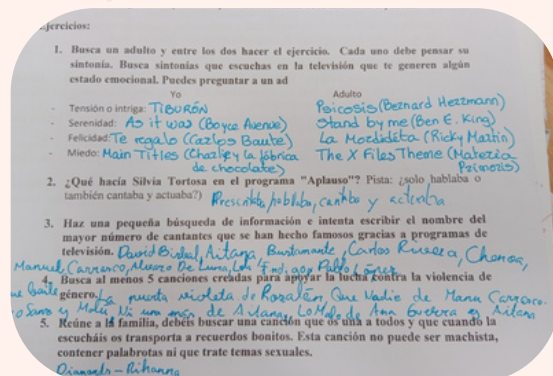 Ejercicios:
1. Busca un adulto y entre los dos hacer el ejercicio. Cada uno debe pensar su
sintonía. Busca sintonías que escuchas en la televisión que te generen algún
estado emocional. Puedes preguntar a un ad
Yo Adulto
- Tensión o intriga: TIBURÓN Psicosis (Bernard Herrmann)
- Serenidad: As it was (Boyce Avenue) Stand by me (Ben E. King)
- Felicidad: Te regalo (Carlos Baute) La Mordidita (Ricky Martin)
- Miedo: Main Titles (Charlie y la fábrica The X Files Theme (Materia
de chocolate) Primoris)
2. ¿Qué hacía Silvia Tortosa en el programa "Aplauso"? Pista: ¿solo hablaba o
también cantaba y actuaba?) Presentaba, hablaba, cantaba y actuaba.
3. Haz una pequeña búsqueda de información e intenta escribir el nombre del
mayor número de cantantes que se han hecho famosos gracias a programas de
televisión. David Bisbal, Aitana, Bustamante, Carlos Rivera, Chenoa,
Manuel Carrasco, Alvaro De Luna, Lola Indigo, Pablo López
4. Busca al menos 5 canciones creadas para apoyar la lucha contra la violencia de
género. La puerta violeta de Rozalén, Que Nadie de Manu Carrasco.
y Malú, Ni una más de Aitana, Lo Malo de Ana Guerra y Aitana
5. Reúne a la familia, debéis buscar una canción que os una a todos y que cuando la
escucháis os transporta a recuerdos bonitos. Esta canción no puede ser machista,
contener palabrotas ni que trate temas sexuales.
Diamonds - Rihanna